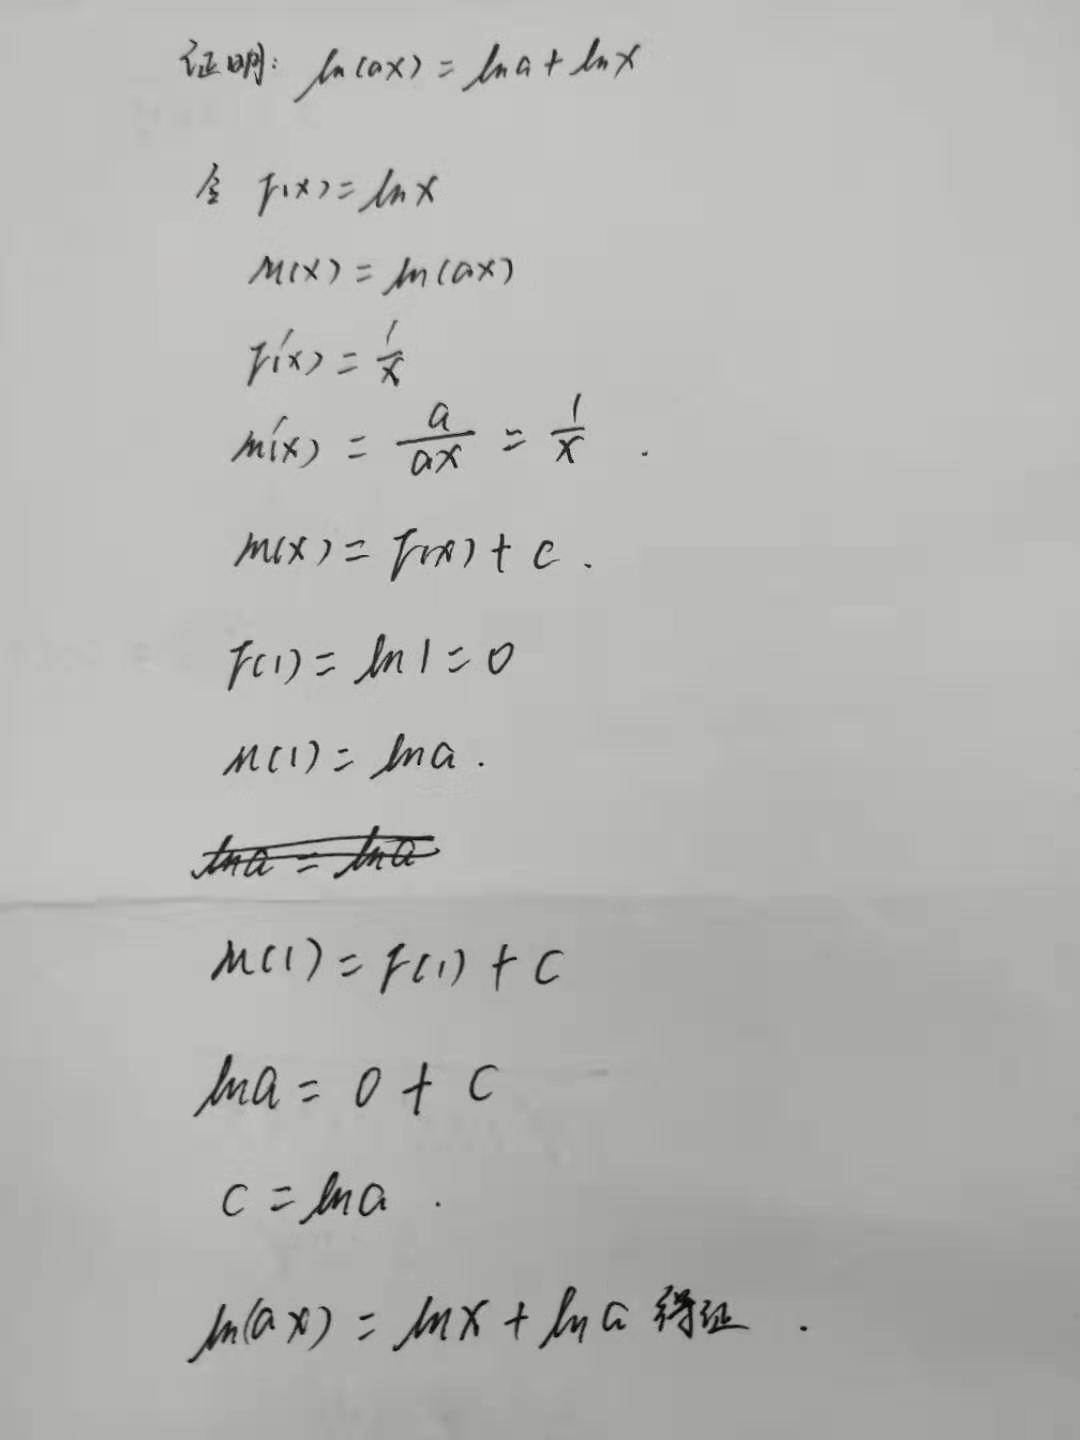 证明: ln(ax) = lna + lnx
令 F(x) = lnx
M(x) = ln(ax)
F'(x) = 1/x
M'(x) = a/ax = 1/x .
M(x) = F(x) + C .
F(1) = ln1 = 0
M(1) = lna .
lna = lna
M(1) = F(1) + C
lna = 0 + C
C = lna .
ln(ax) = lnx + lna 得证 .